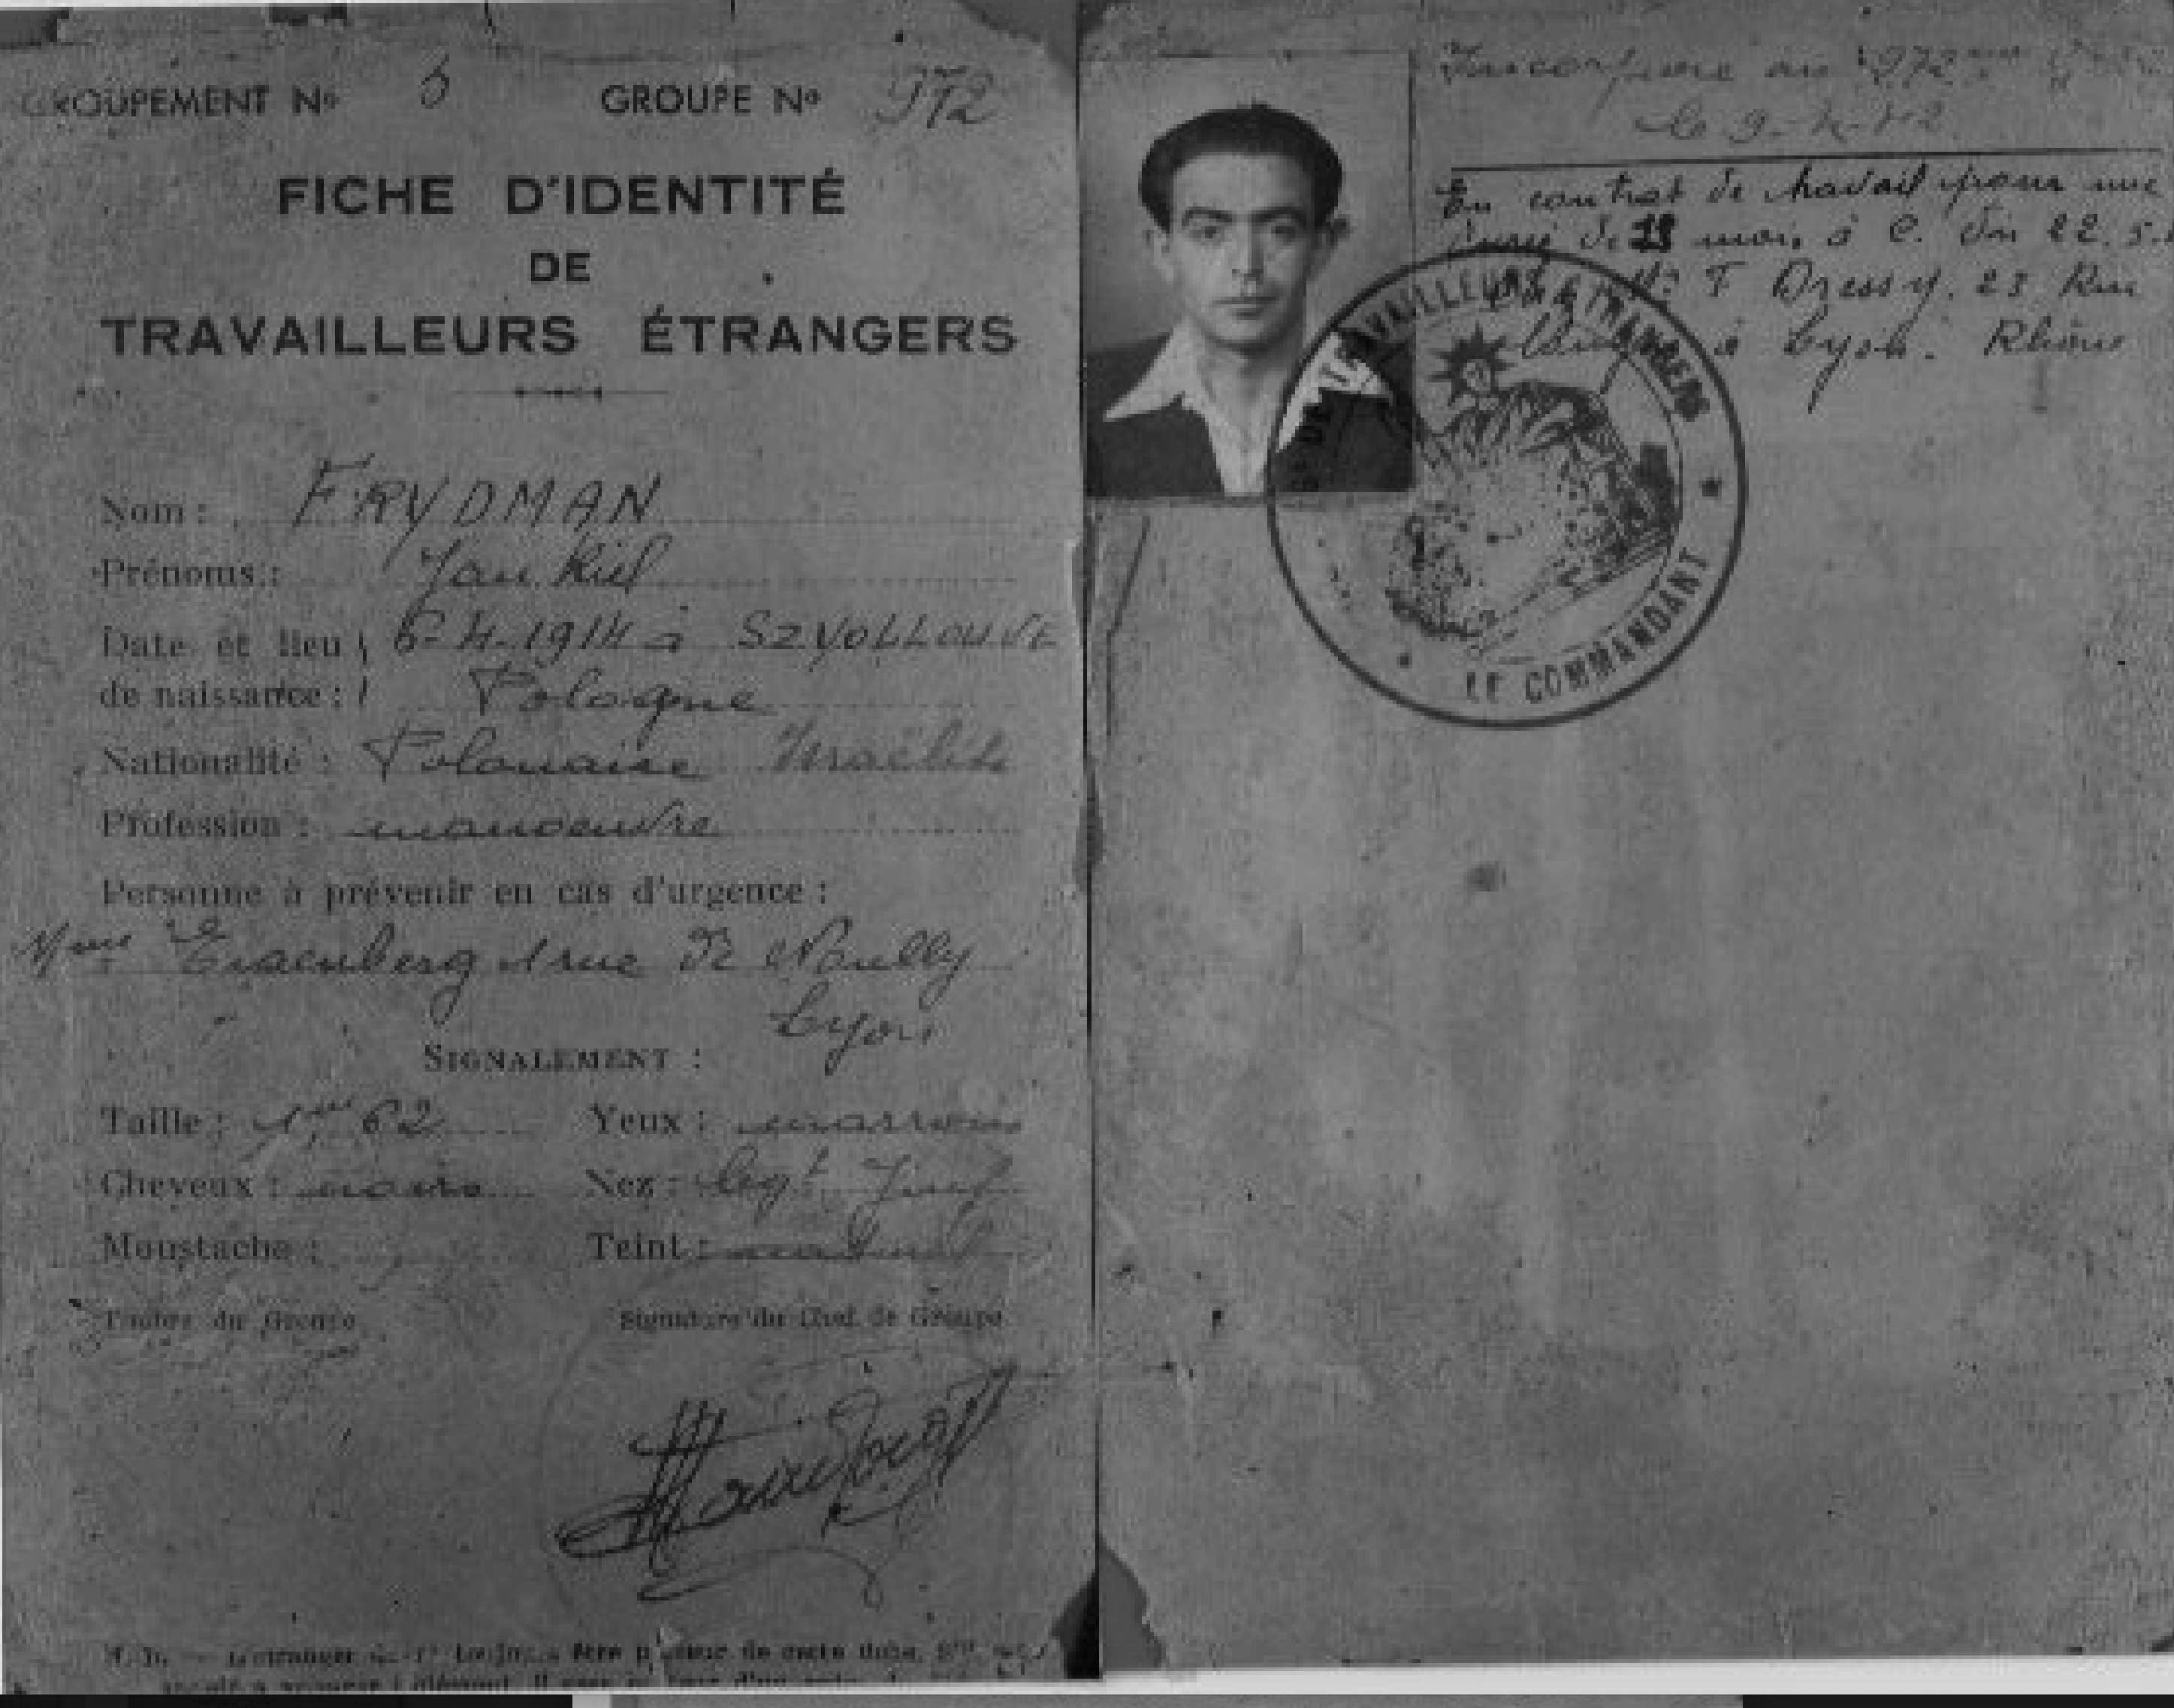 GROUPEMENT No 5 GROUPE No 972
FICHE D'IDENTITÉ
DE
TRAVAILLEURS ÉTRANGERS
Nom : FRYDMAN
Prénoms : Jankiel
Date et lieu 6-4-1914 à SZYOLLOUVE
de naissance : Pologne
Nationalité : Polonaise Israélite
Profession : manoeuvre
Personne à prévenir en cas d'urgence :
Mme rue de Neuilly
Lyon
SIGNALEMENT :
Taille : 1m 62 Yeux : marrons
Cheveux : noirs Nez : legt
Moustache : Teint :
Timbre du Groupe Signature du Chef de Groupe
être de cette
Incorporé au 972
le 9-4-42
En contrat de travail pour une
durée de mois à C. du 22.5.
F Dressy. 23 Rue
à Lyon. Rhône
TRAVAILLEURS ÉTRANGERS
LE COMMANDANT